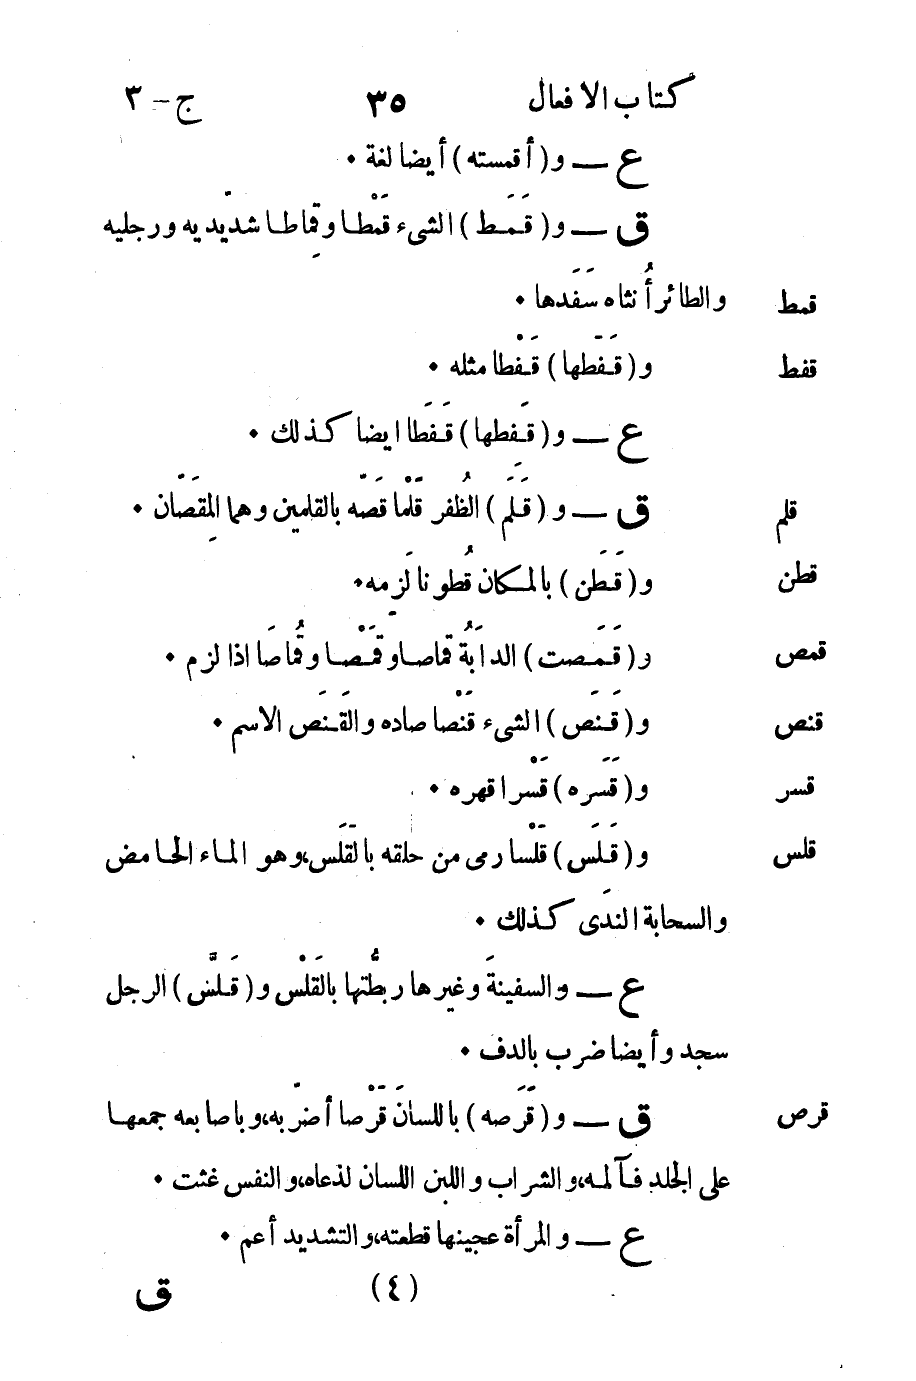 كتاب الافعال ٣٥ ج - ٣
ع — و( أقمسته ) أيضا لغة •
ق — و( قَمَط ) الشيء قَمْطا وقِماطا شدّ يديه ورجليه
قمط والطائر أُنثاه سَفَدها •
قفط و( قَفَطها ) قَفْطا مثله •
ع — و( قَفَطها ) قَفَطا ايضا كذلك •
قلم ق — و( قَلَم ) الظُفر قَلْما قَصّه بالقلمين وهما المِقَصّان •
قطن و( قَطَن ) بالمكان قُطونا لَزِمه •
قمص و( قَمَصت ) الدابّة قِماصا وقَمْصا وقُماصا اذا لزم •
قنص و( قَنَص ) الشيء قَنْصا صاده والقَنَص الاسم •
قسر و( قَسَره ) قَسْرا قهره •
قلس و( قَلَس ) قَلْسا رمى من حلقه بالقَلَس، وهو الماء الحامض
والسحابة الندَى كذلك •
ع — والسفينةَ وغيرها ربطُّتها بالقَلْس و( قَلَّسَ ) الرجل
سجد وأيضا ضرب بالدف •
قرص ق — و( قَرَصه ) باللسان قَرْصا أضرّ به، وباصابعه جمعها
على الجلد فآلمه، والشراب واللبن اللسان لذعاه، والنفس غثت •
ع — والمرأة عجينها قطعته، والتشديد أعم •
(٤) ق